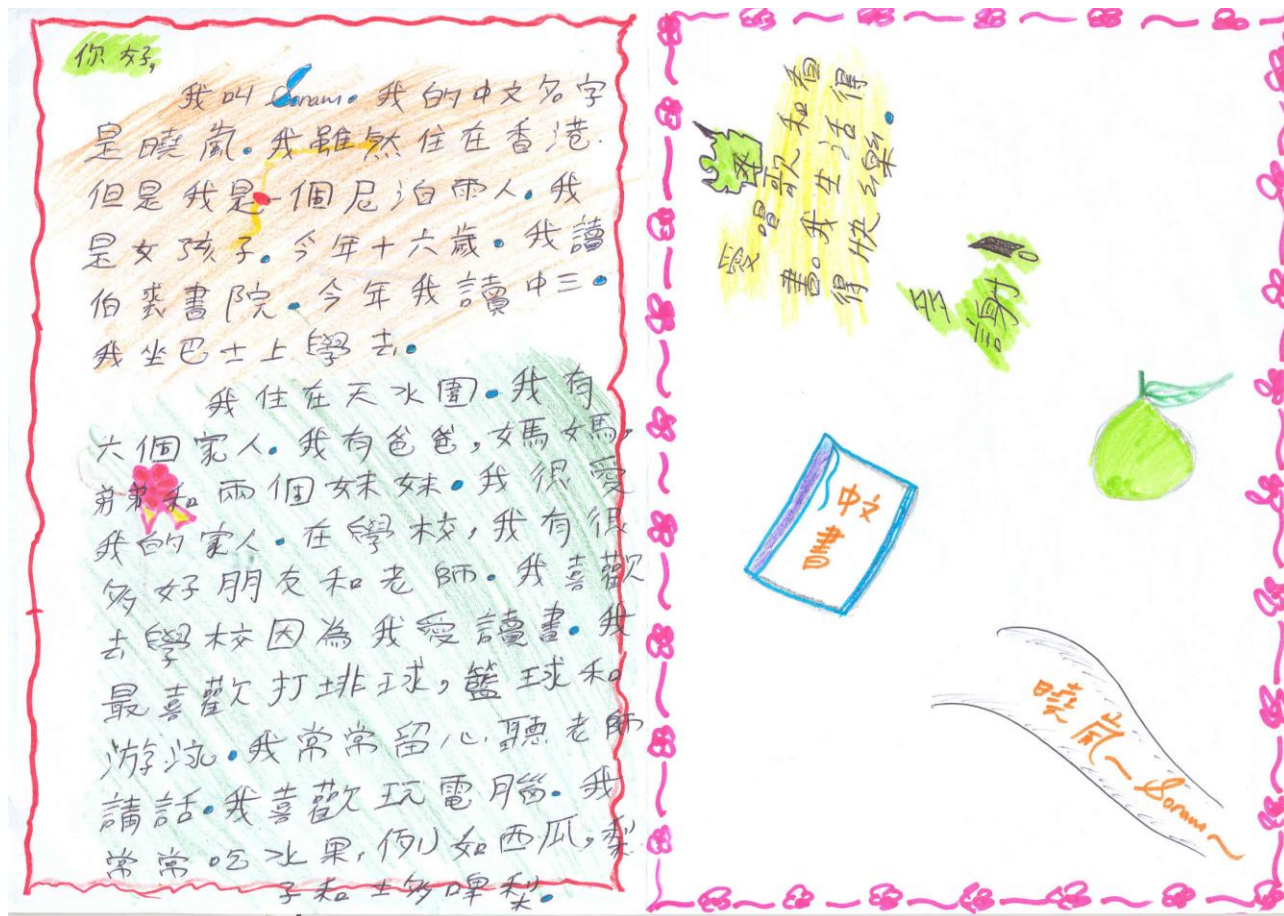 你好,
我叫Sonam。我的中文名字
是曉嵐。我雖然住在香港.
但是我是一個尼泊爾人。我
是女孩子。今年十六歲。我讀
伯裘書院。今年我讀中三。
我坐巴士上學去。
我住在天水圍。我有
六個家人。我有爸爸,媽媽,
弟弟和兩個妹妹。我很愛
我的家人。在學校,我有很
多好朋友和老師。我喜歡
去學校因為我愛讀書。我
最喜歡打排球,籃球和
游泳。我常常留心聽老師
講話。我喜歡玩電腦。我
常常吃水果,例如西瓜,梨
子和士多啤梨。
愛唱歌和看
書。我生活得
得快樂。
多謝!
中文
書
曉嵐~Sonam~